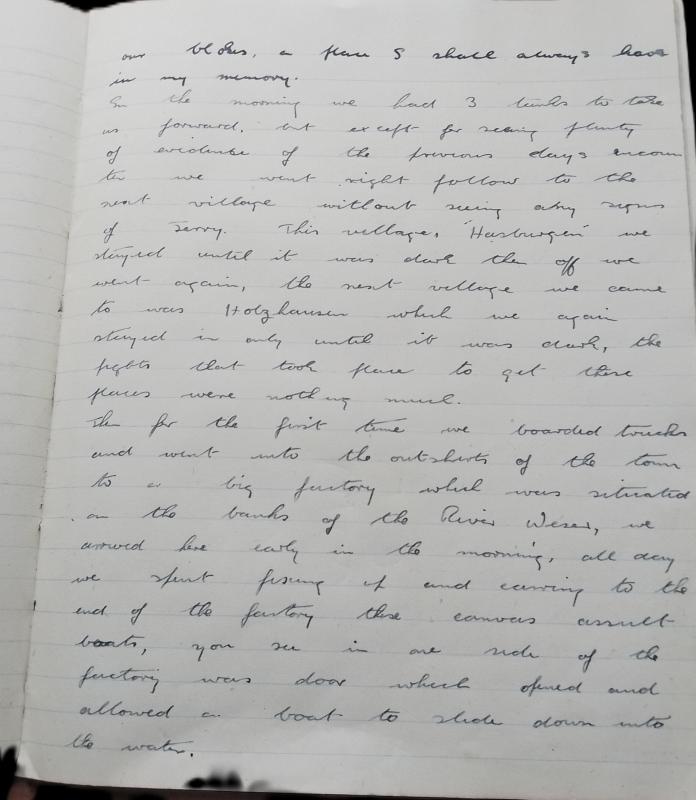 our blokes, a place I shall always have
in my memory.
In the morning we had 3 tanks to take
us forward, but except for seeing plenty
of evidence of the previous days encoun
ter we went right follow to the
next village without seeing any signs
of Jerry. This village, 'Hasburgen' we
stayed until it was dark then off we
went again, the next village we came
to was Holzhausen which we again
stayed in only until it was dark, the
fights that took place to get these
places were nothing much.
Then for the first time we boarded trucks
and went into the outskirts of the town
to a big factory which was situated
on the banks of the River Weser, we
arrived here early in the morning, all day
we spent fixing up and carring to the
end of the factory these canvas assult
boats, you see in one side of the
factory was door which opened and
allowed a boat to slide down into
the water.